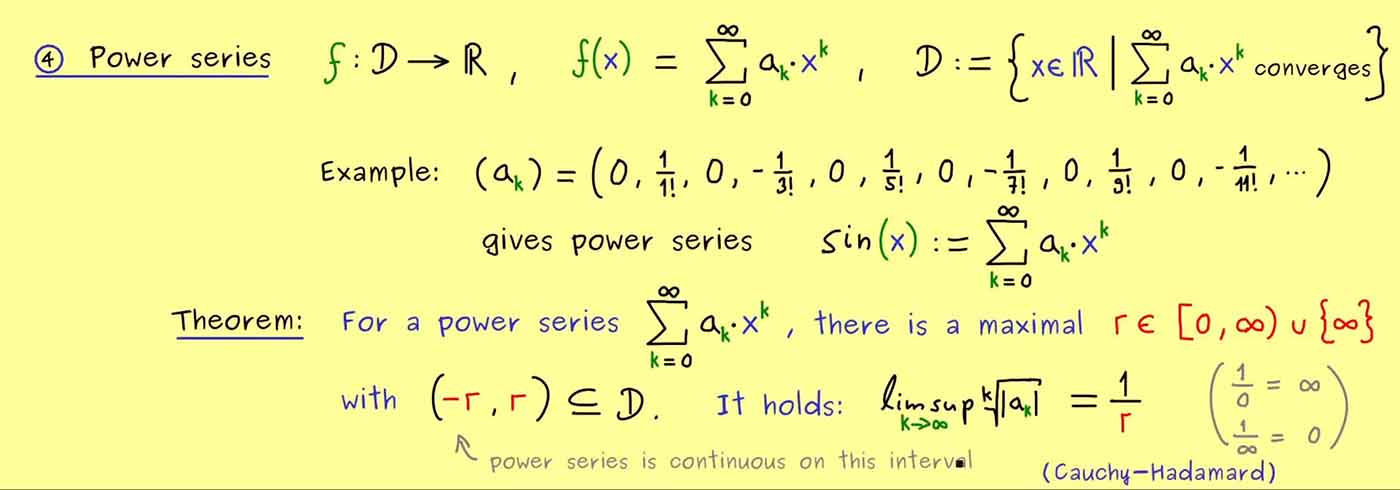 ④ Power series f : D → ℝ , f(x) = ∑_{k=0}^{∞} a_k · x^k , D := { x ∈ ℝ | ∑_{k=0}^{∞} a_k · x^k converges }
Example: (a_k) = (0, 1/1!, 0, -1/3!, 0, 1/5!, 0, -1/7!, 0, 1/9!, 0, -1/11!, ...)
gives power series sin(x) := ∑_{k=0}^{∞} a_k · x^k
Theorem: For a power series ∑_{k=0}^{∞} a_k · x^k , there is a maximal r ∈ [0, ∞) ∪ {∞}
with (-r, r) ⊆ D. It holds: lim sup_{k→∞} ᵏ√|a_k| = 1/r (1/0 = ∞, 1/∞ = 0)
power series is continuous on this interval
(Cauchy-Hadamard)